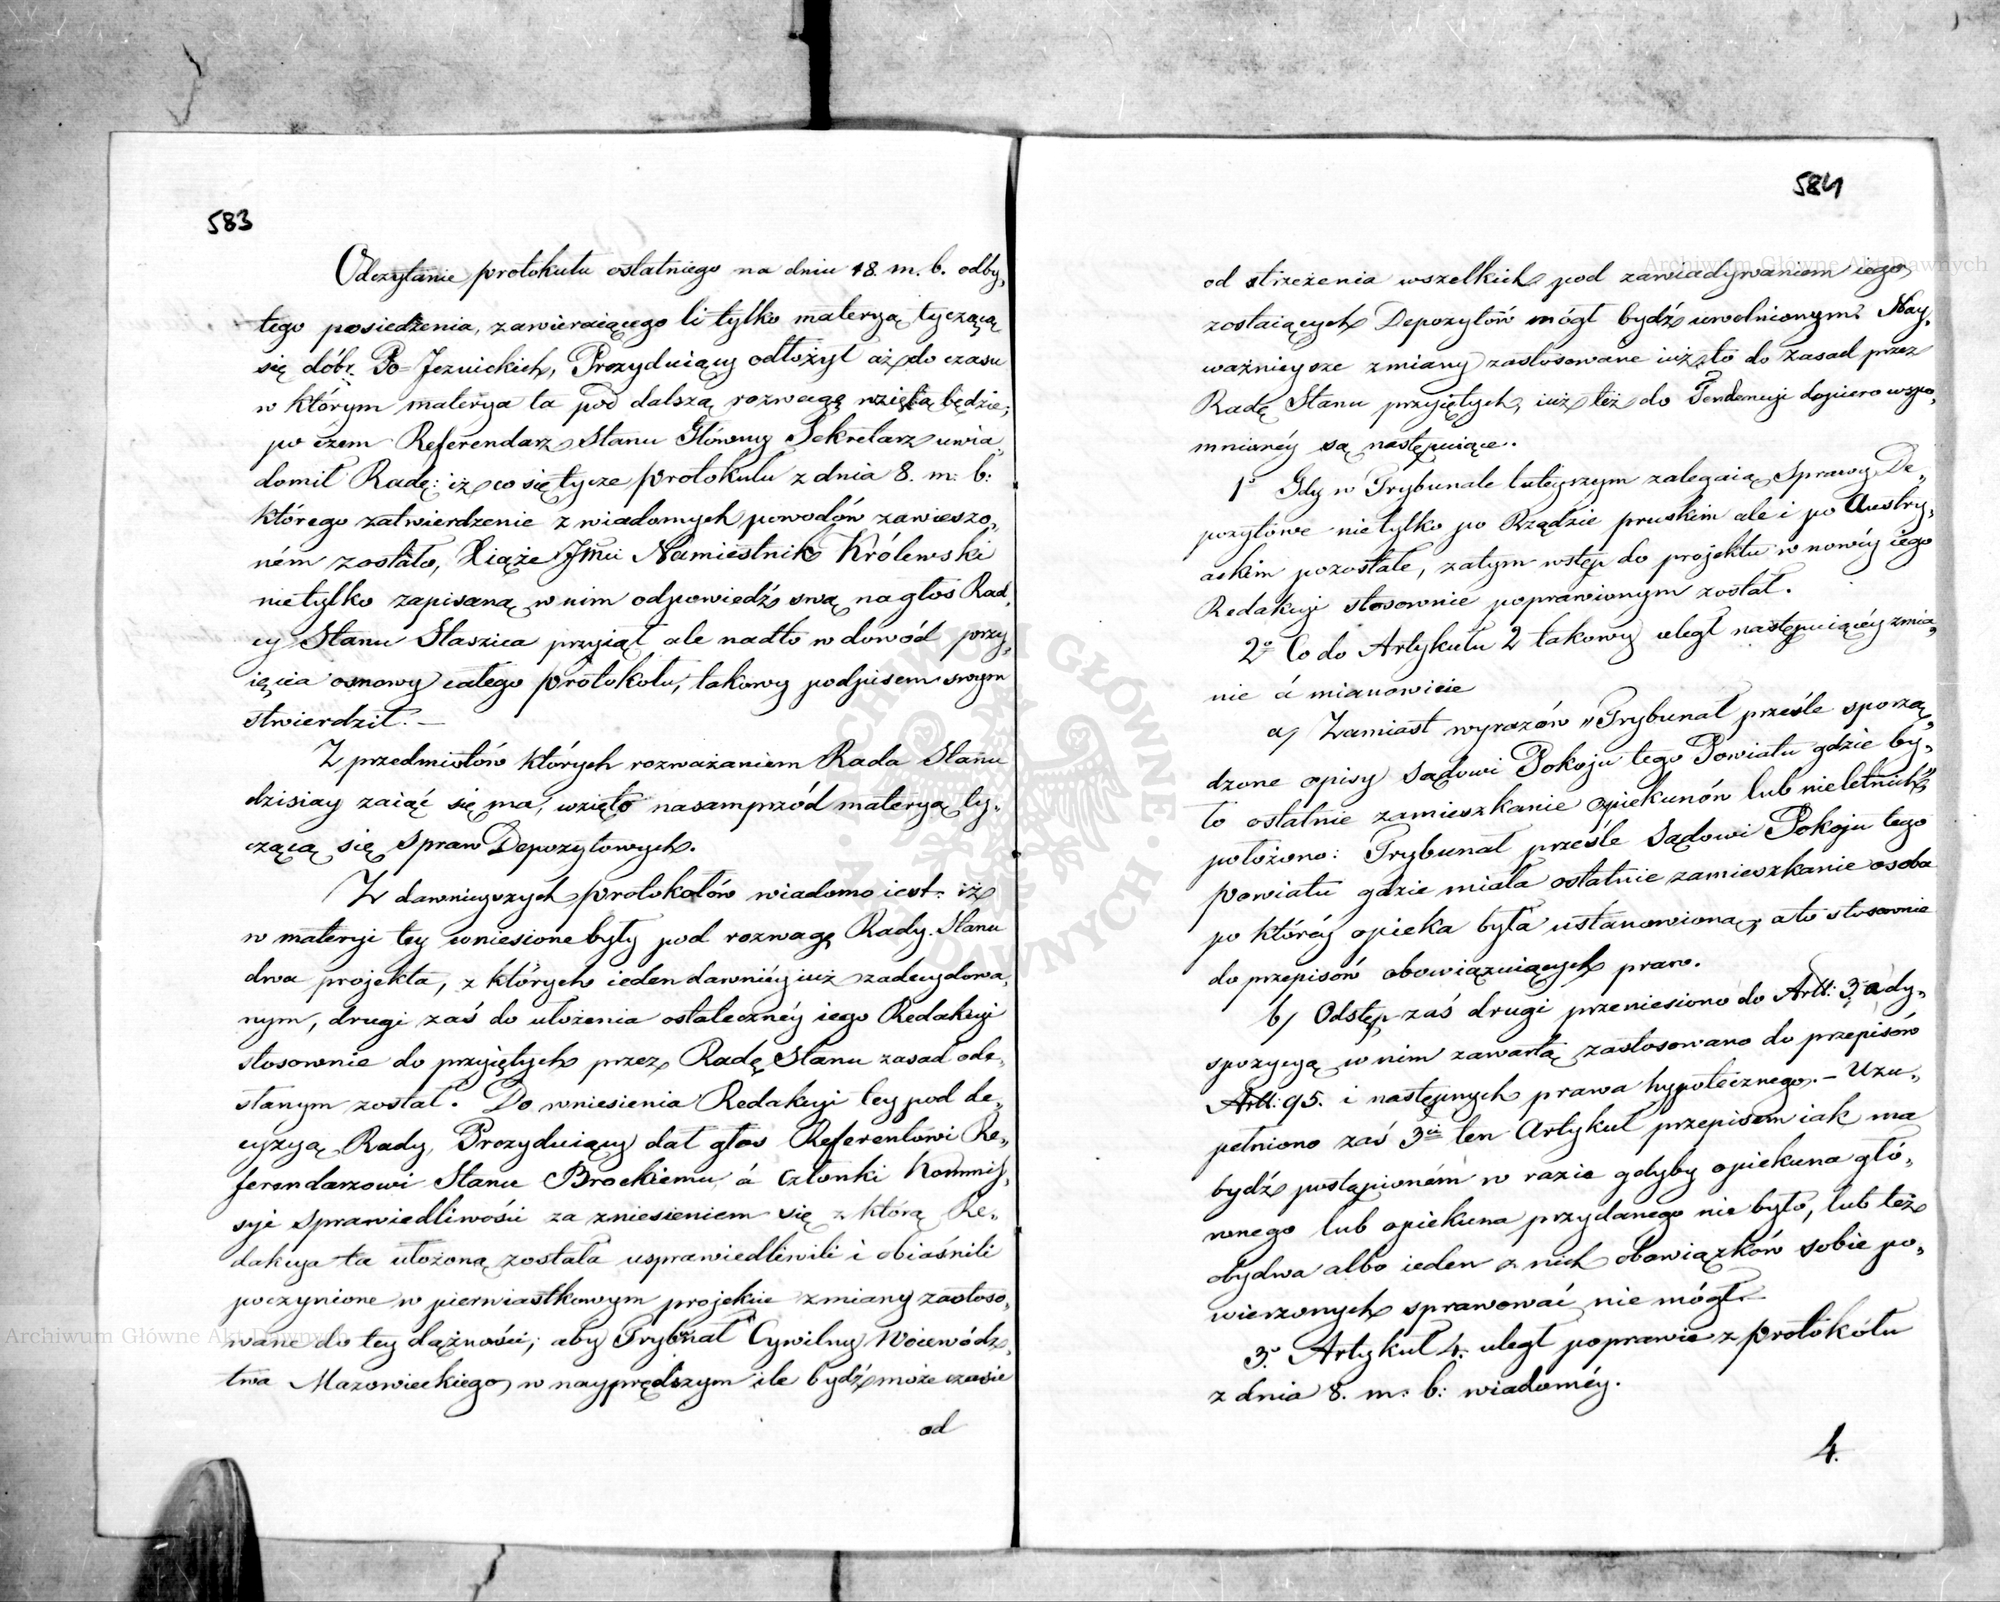 583
Odczytanie protokułu ostatniego na dniu 18. m. b. odby„
tego posiedzenia, zawieraiącego li tylko materyą tyczącą
się dóbr Po=Jezuickich, Prezyduiący odłożył aż do czasu
w którym materya ta pod dalszą rozwagę wzięta będzie;
po czem Referendarz Stanu Główny Sekretarz uwia„
domił Radę: iż co się tycze protokułu z dnia 8. m: b:
którego zatwierdzenie z wiadomych powodów zawieszo„
ném zostało, Xiąże Jmci Namiestnik Królewski
nietylko zapisaną w nim odpowiedź swą na głos Rad„
cy Stanu Staszica przyiął ale nadto w dowód przy„
ięcia osnowy całego protokołu, takowy podpisem swym
stwierdził. —
Z przedmiotów których rozważaniem Rada Stanu
dzisiay zaiąć się ma, wzięto nasamprzód materyą ty„
czącą się spraw Depozytowych.
Z dawnieyszych protokołów wiadomo iest: iż
w materyi tey wniesione były pod rozwagę Rady Stanu
dwa projekta, z których ieden dawniéy iuż zadecydowa„
nym, drugi zaś do ułożenia ostateczney iego Redakcyi
stosownie do przyiętych przez Radę Stanu zasad ode„
słanym został. Do wniesienia Redakcyi tey pod de„
cyzyą Rady, Prezyduiący dał głos Referentowi Re„
ferendarzowi Stanu Brockiemu á członki Kommis„
syi Sprawiedliwości za zniesieniem się z którą Re„
dakcya ta ułożoną została usprawiedliwili i obiaśnili
poczynione w pierwiastkowym projekcie zmiany zastoso„
wane do tey dążności; aby Trybunał Cywilny Woiewódz„
twa Mazowieckiego w nayprędszym ile bydź może czasie
od
584
od strzeżenia wszelkich pod zawiadywaniem iego
zostaiących Depozytów mógł bydź uwolnionym. Nay„
ważnieysze zmiany zastosowane iuż to do zasad przez
Radę Stanu przyiętych, iuż też do Tendencyi dopiero wspo„
mnionéy są następuiące.
1o Gdy w Trybunale tuteyszym zalegaią Sprawy De„
pozytowe nietylko po Rządzie pruskim ale i po Austry„
ackim pozostałe, zatym wstęp do projektu w nowéy iego
Redakcyi stosownie poprawionym został.
2o Co do Artykułu 2 takowy uległ następuiącéy zmia„
nie á mianowicie
a/ Zamiast wyrazów „Trybunał prześle sporzą„
dzone opisy Sądowi Pokoju tego Powiatu gdzie by„
ło ostatnie zamieszkanie opiekunów lub nieletnich„
położono: Trybunał prześle Sądowi Pokoju tego
powiatu gdzie miała ostatnie zamieszkanie osoba
po któréy opieka była ustanowioną, a to stosownie
do przepisów obowiązuiących praw.
b/ Odstęp zaś drugi przeniesiono do Artt: 3, a dy„
spozycyą w nim zawartą zastosowano do przepisów
Artt: 95. i następnych prawa hypotecznego. — Uzu„
pełniono zaś 3ci ten Artykuł przepisem iak ma
bydź postąpioném w razie gdyby opiekuna głó„
wnego lub opiekuna przydanego nie było, lub też
obydwa albo ieden z nich obowiązków sobie po„
wierzonych sprawować nie mógł.
3o Artykuł 4. uległ poprawie z protokółu
z dnia 8. m: b: wiadoméy.
4.
Archiwum Główne Akt Dawnych
Archiwum Główne Akt Dawnych
ARCHIWUM GŁÓWNE AKT DAWNYCH